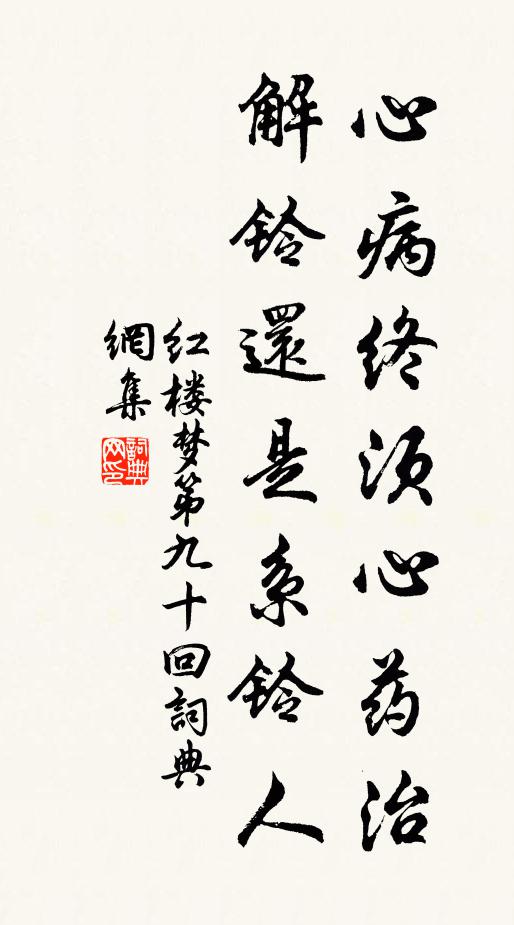 心病终须心药治
解铃還是系铃人
红楼梦第九十回詞典
網集
詞典
网印